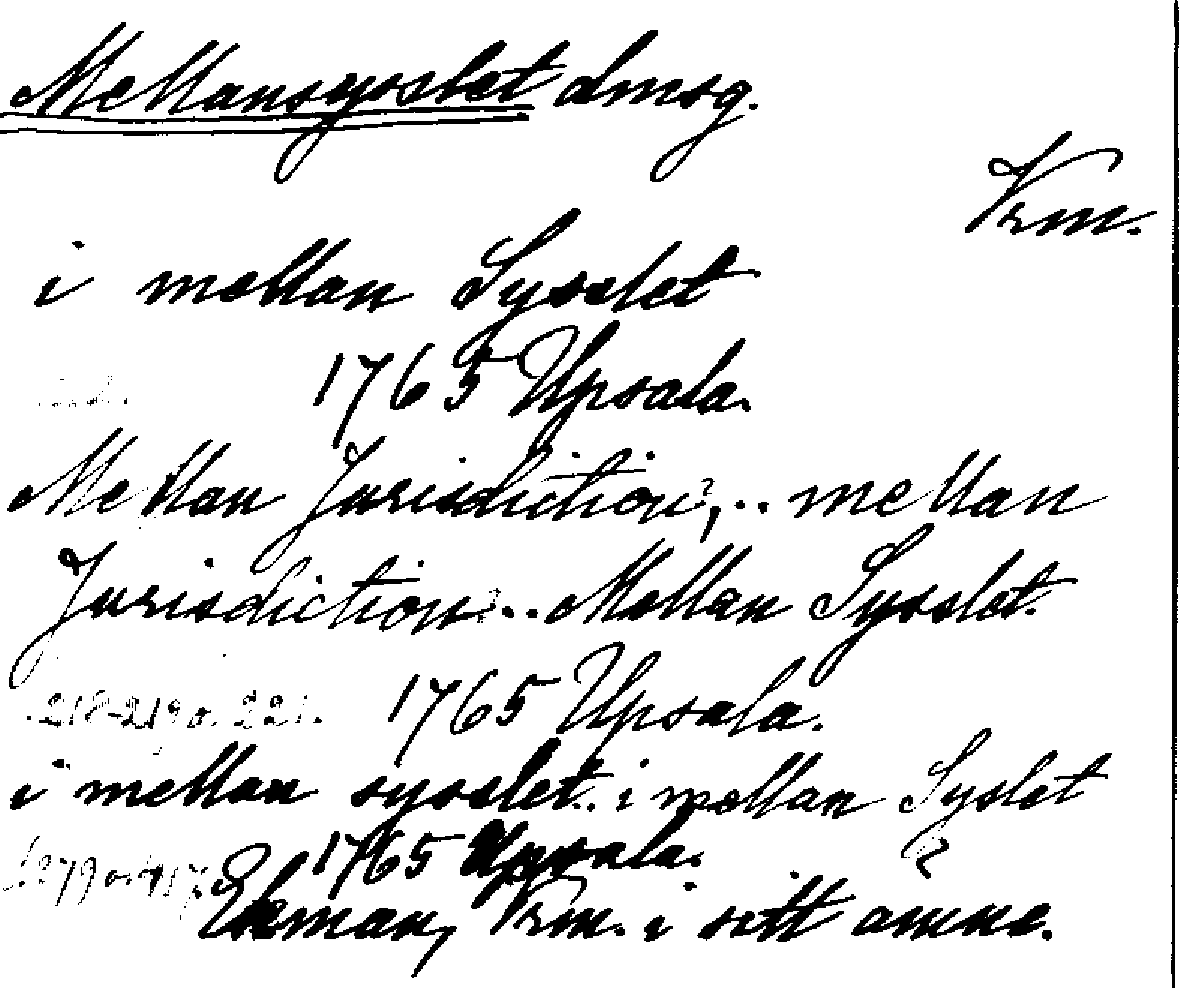 Mellansysslet dmsg.
Vrm.
i mellan Sysslet
1765 Upsala.
Mellan Jurisdiction,.. mellan
Jurisdiction... Mellan Sysslet.
218-219 o. 221. 1765 Upsala.
i mellan sysslet. i mellan Syslet
279 o. 417. 1765 Upsala. ?
Ekman, Vrm. i sitt ämne.